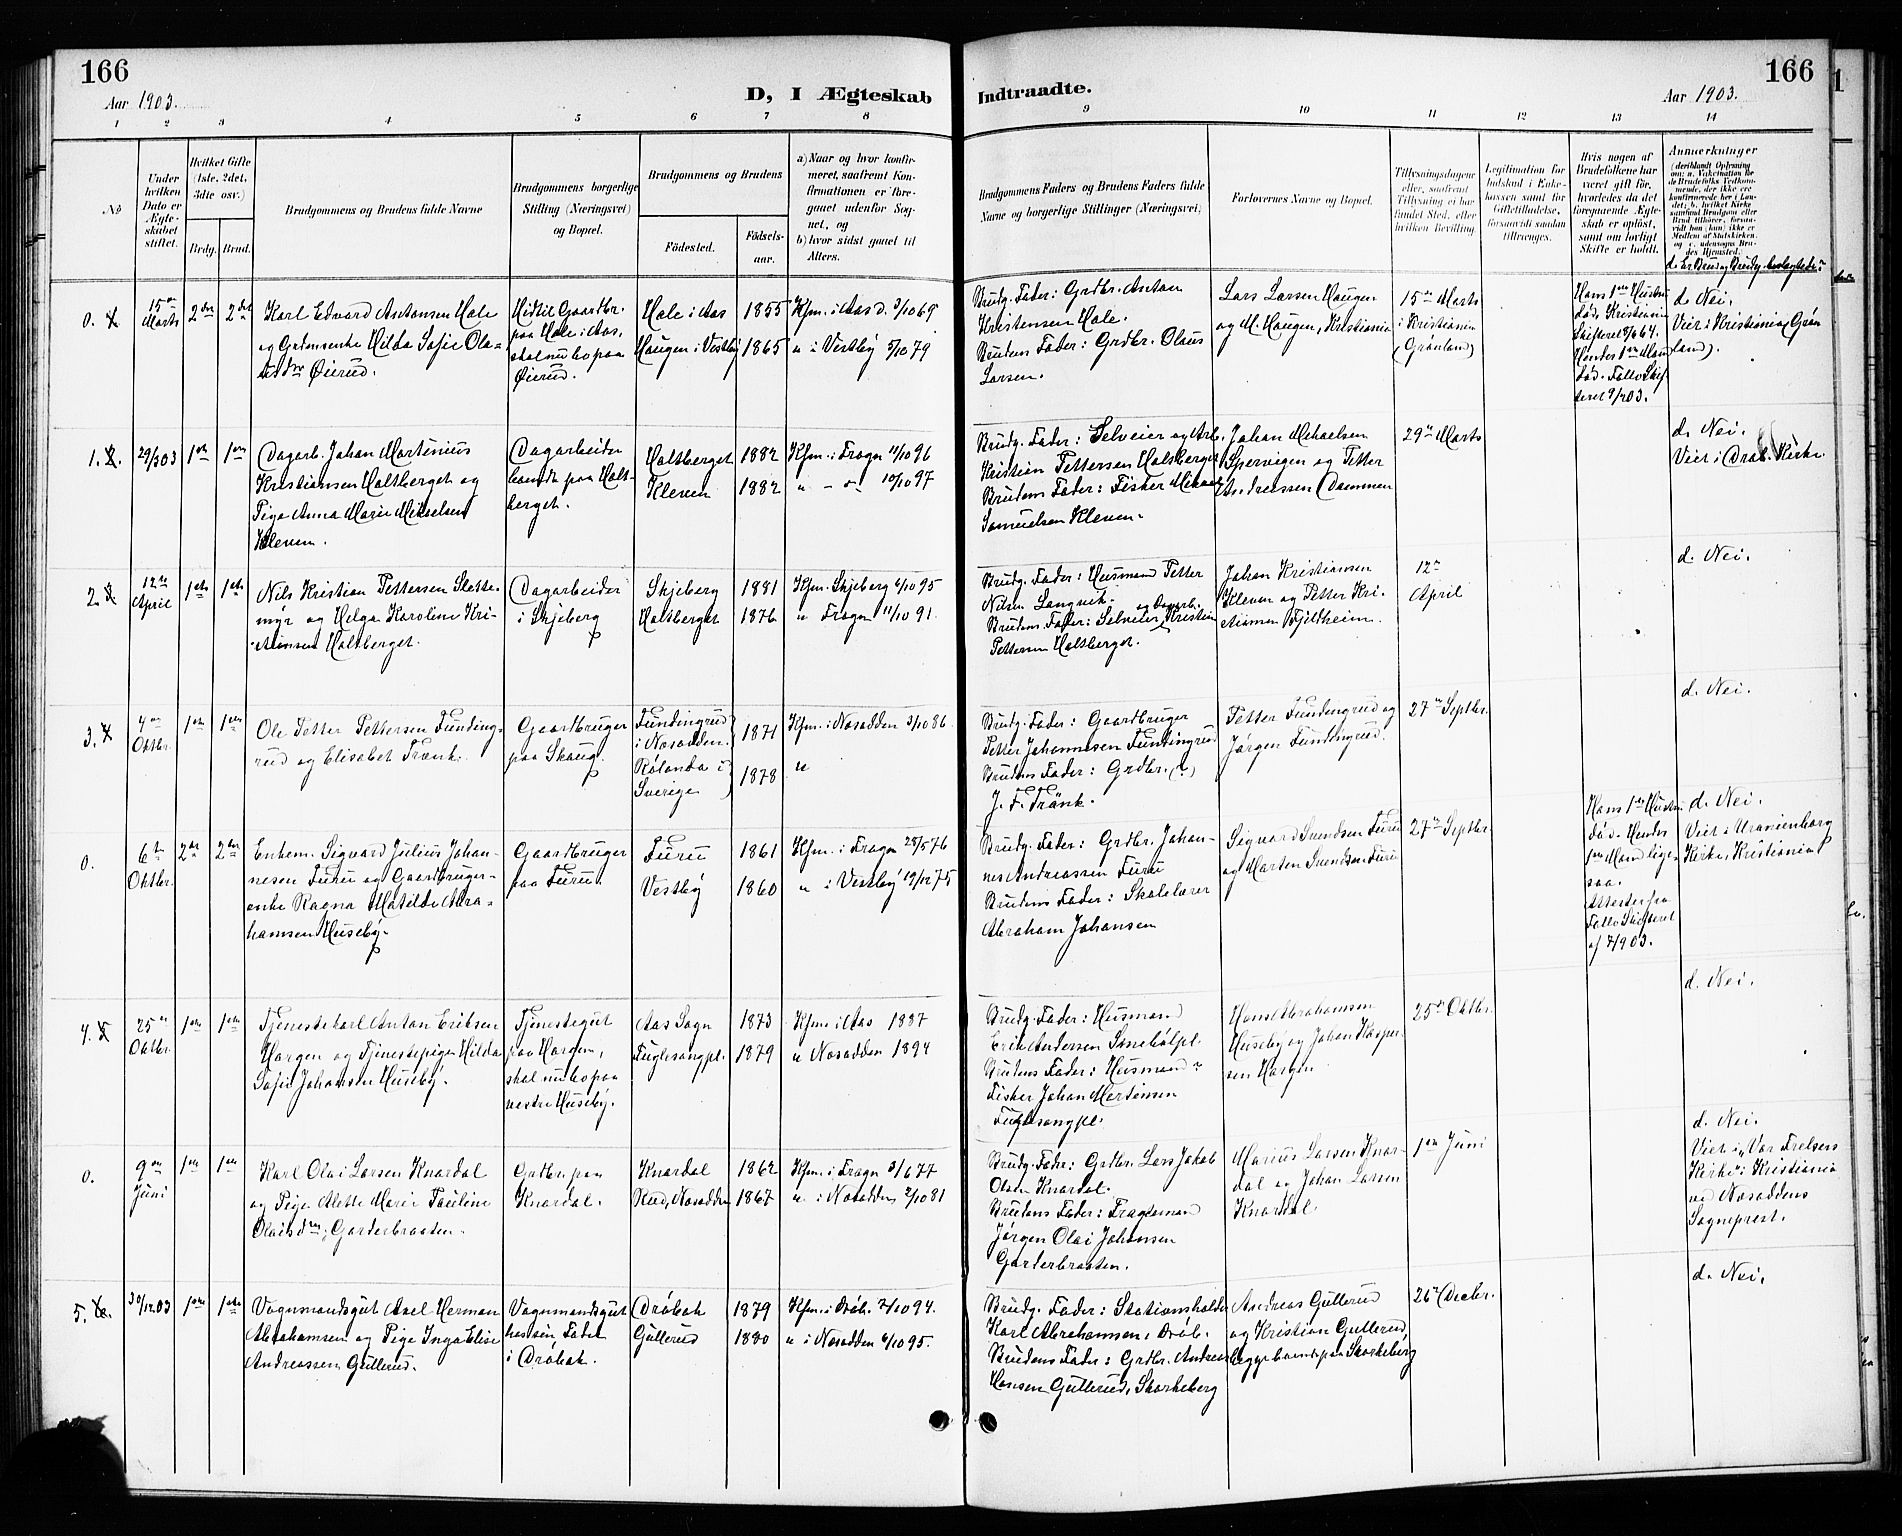 166
Aar 1903.
D, I Ægteskab
Indtraadte.
166
Aar 1903.
1 2 3 4 5 6 7 8 9 10 11 12 13 14
No
Under hvilken Dato er Ægteskabet stiftet.
Hvilket Gifte (1ste, 2det, 3die osv.)
Brdg. Brud.
Brudgommens og Brudens fulde Navne
Brudgommens borgerlige Stilling (Næringsvei) og Bopæl.
Brudgommens og Brudens
Fødested.
Fødselsaar.
a) Naar og hvor konfirmeret, saafremt Konfirmationen er foregaaet udenfor Sognet, og
b) hvor sidst gaaet til Alters.
Brudgommens Faders og Brudens Faders fulde Navne og borgerlige Stillinger (Næringsvei)
Forlovernes Navne og Bopæl.
Tillysningsdagene eller, saafremt Tillysning ei har fundet Sted, efter hvilken Bevilling.
Legitimation for Indskud i Enkekassen samt for Giftetilladelse, forsaavidt saadan tiltrænges.
Hvis nogen af Brudefolkene har været gift før, hvorledes da det foregaaende Ægteskab er opløst, samt om lovligt Skifte er holdt.
Anmærkninger
(deriblandt Oplysning om: a. Vakcination for de Brudefolks Vedkommende, der ikke ere konfirmerede her i Landet; b. hvilket Kirkesamfund Brudgom eller Brud tilhører, forsaavidt han (hun) ikke er Medlem af Statskirken, og c. udensogns Brudes Hjemsted.
0.
15de Marts
2den
2det
Karl Edvard Antonsen Hole
og Grdmenke Hilda Sofie Ola-
Øierud.
Hidtil Gaardbr.
paa Hole i Aas,
skal nu bo paa
Øierud.
Hole i Aas
Haugen i Vestby
1855
1865
Kfm. i Aas d. 3/10 69
" i Vestby 5/10 79
Brudg. Fader: Grdbr. Anton
Kristensen Hole.
Brudens Fader: Grdbr. Olaus
Larsen.
Lars Larsen Haugen
og M. Haugen, Kristiania
15de Marts
i Kristiania
(Grønland)
Hans 1ste Hustru
død, Kristiania
Skifteret
Hendes 1ste Mand
død. Follo Skif-
teret 9/2 03.
d. Nei.
Viet i Kristiania (Grøn
land).
1.
29/3 03
1ste
1ste
Dagarb. Johan Martinius
Kristiansen Holtberget og
Pige Anna Marie Mikaelsen
Kleven.
Dagarbeider
boende paa Holt-
berget.
Holtberget
Kleven
1882
1882
Kfm. i Frogn 11/10 96
" - " 10/10 97
Brudg. Fader: Selveier og Arb.
Kristian Pettersen Holtberget
Brudens Fader: Fisker Mikael
Samuelsen Kleven.
Johan Mikaelsen
Spervigen og Petter
Andreassen Dammen
29de Marts
d. Nei.
Viet i Drøb. Kirke
2.
12te
April
1ste
1ste
Nils Kristian Pettersen Slette-
myr og Helga Karoline Kri-
stiansen Holtberget.
Dagarbeider
i Skjeberg
Skjeberg
Holtberget
1881
1876
Kfm. Skjeberg 6/10 95
" Frogn 11/10 91.
Brudg. Fader: Husmand Petter
Nilsen Langvik.
Brudens Fader: Selveier og Dagarb. Kristian
Pettersen Holtberget.
Johan Kristiansen
Kleven og Petter Kri-
stiansen Fjeldheim.
12te
April
d. Nei.
3.
4de
Oktbr.
1ste
1ste
Ole Petter Pettersen Funding-
rud og Elisabet Tränk.
Gaardbruger
paa Skaug.
Fundingrud
i Nesodden.
Rölanda i
Sverige
1871
1878
Kfm. i Nesodden 3/10 86.
"
Brudg. Fader: Gaardbruger
Petter Johannesen Fundingrud
Brudens Fader: Grdbr. (?)
J. F. Tränk.
Petter Fundingrud og
Jørgen Fundingrud.
27de Septbr.
d. Nei.
0.
6te
Oktbr.
2det
2det
Enkem. Sigvard Julius Johan-
nesen Furu og Gaardbruger-
enke Ragna Matilde Abra-
hamsen Huseby.
Gaardbruger
paa Furu.
Furu
Vestby
1861
1860
Kfm. i Frogn 28/5 76
" i Vestby 19/12 75
Brudg. Fader: Grdbr. Johan-
nes Andreassen Furu
Brudens Fader: Skolelærer
Abraham Johansen
Sigvard Svendsen Furu
og Morten Svendsen Furu
27de Septbr.
Hans 1ste Hustru
død. Hendes
1ste Mand lige-
saa.
Attester fra
Follo Skifteret
af 7/9 03.
d. Nei.
Viet i Uranienborg
Kirke, Kristiania
4.
25de
Oktbr.
1ste
1ste
Tjenestekarl Anton Eriksen
Horgen og Tjenestepige Hilda
Sofie Johansen Huseby.
Tjenestegut
paa Horgen,
skal nu bo paa
vestre Huseby.
Aas Sogn
Fuglesangpl.
1873
1879
Kfm. i Aas 1887
" Nesodden 1894
Brudg. Fader: Husmand
Erik Andersen Smebølpl.
Brudens Fader: Husmand
Fisker Johan Mortensen
Fuglesangpl.
Hans Abrahamsen
Huseby og Johan Kasper-
sen Horgen
25de Oktbr.
d. Nei.
0.
9de
Juni
1ste
1ste
Karl Olai Larsen Knardal
og Pige Alette Marie Pauline
Olaisdtr. Garderbraaten.
Grdbr. paa
Knardal.
Knardal
Nesodden
1862
1867
Kfm. i Frogn 3/6 77
" i Nesodden 2/10 81
Brudg. Fader: Grdbr. Lars Jakob
Olsen Knardal.
Brudens Fader:
Jørgen Olai Johansen
Garderbraaten.
Marius Larsen Knar-
dal og Johan Larsen
Knardal.
1ste Juni
d. Nei.
Viet i "Vor Frelsers
Kirke" i Kristiania
ved Nesoddens
Sogneprest.
5.
30/12 03
1ste
1ste
Vognmandsgut Axel Herman
Abrahamsen og Pige Inga Elise
Andreassen Gullerud.
Vognmandsgut
hos sin Fader
i Drøbak.
Drøbak
Gullerud
1879
1880
Kfm. i Drøb. 7/10 94.
" i Nesodden 6/10 95.
Brudg. Fader: Stationsholder
Karl Abrahamsen, Drøb.
Brudens Fader: Grdbr. Andreas
Hansen Gullerud, Skorkeberg
Andreas Gullerud
og Kristian Gullerud,
begge boende paa Skorkeberg
26de Decbr.
d. Nei.